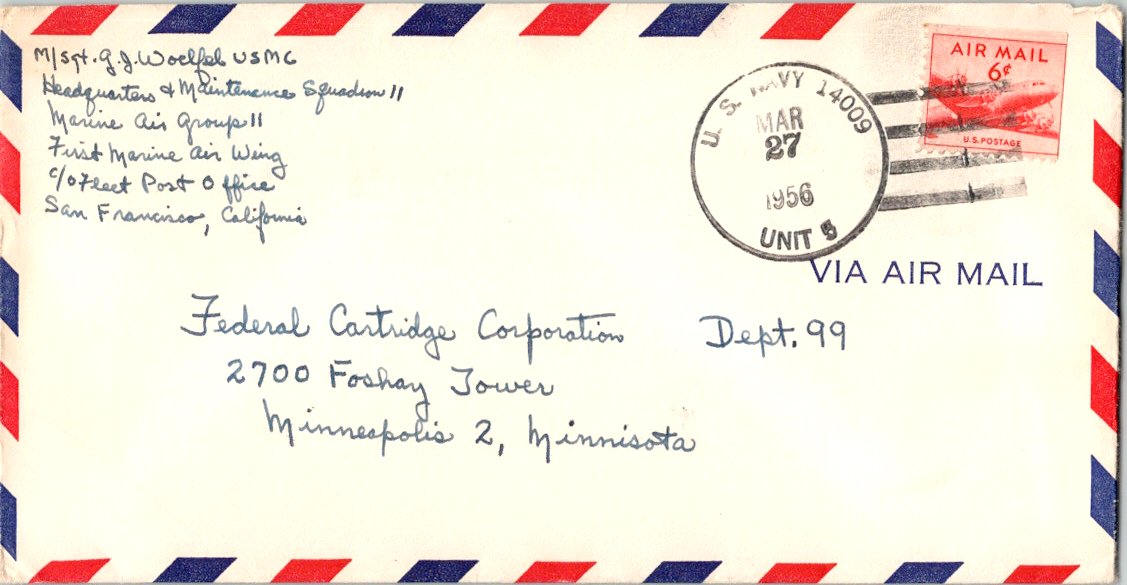 M/Sgt. G. J. Woelfel USMC
Headquarters & Maintenance Squadron 11
Marine Air Group 11
First Marine Air Wing
c/o Fleet Post Office
San Francisco, California
U. S. NAVY 14009
MAR
27
1956
UNIT 5
AIR MAIL
6¢
U.S. POSTAGE
VIA AIR MAIL
Federal Cartridge Corporation Dept. 99
2700 Foshay Tower
Minneapolis 2, Minnisota